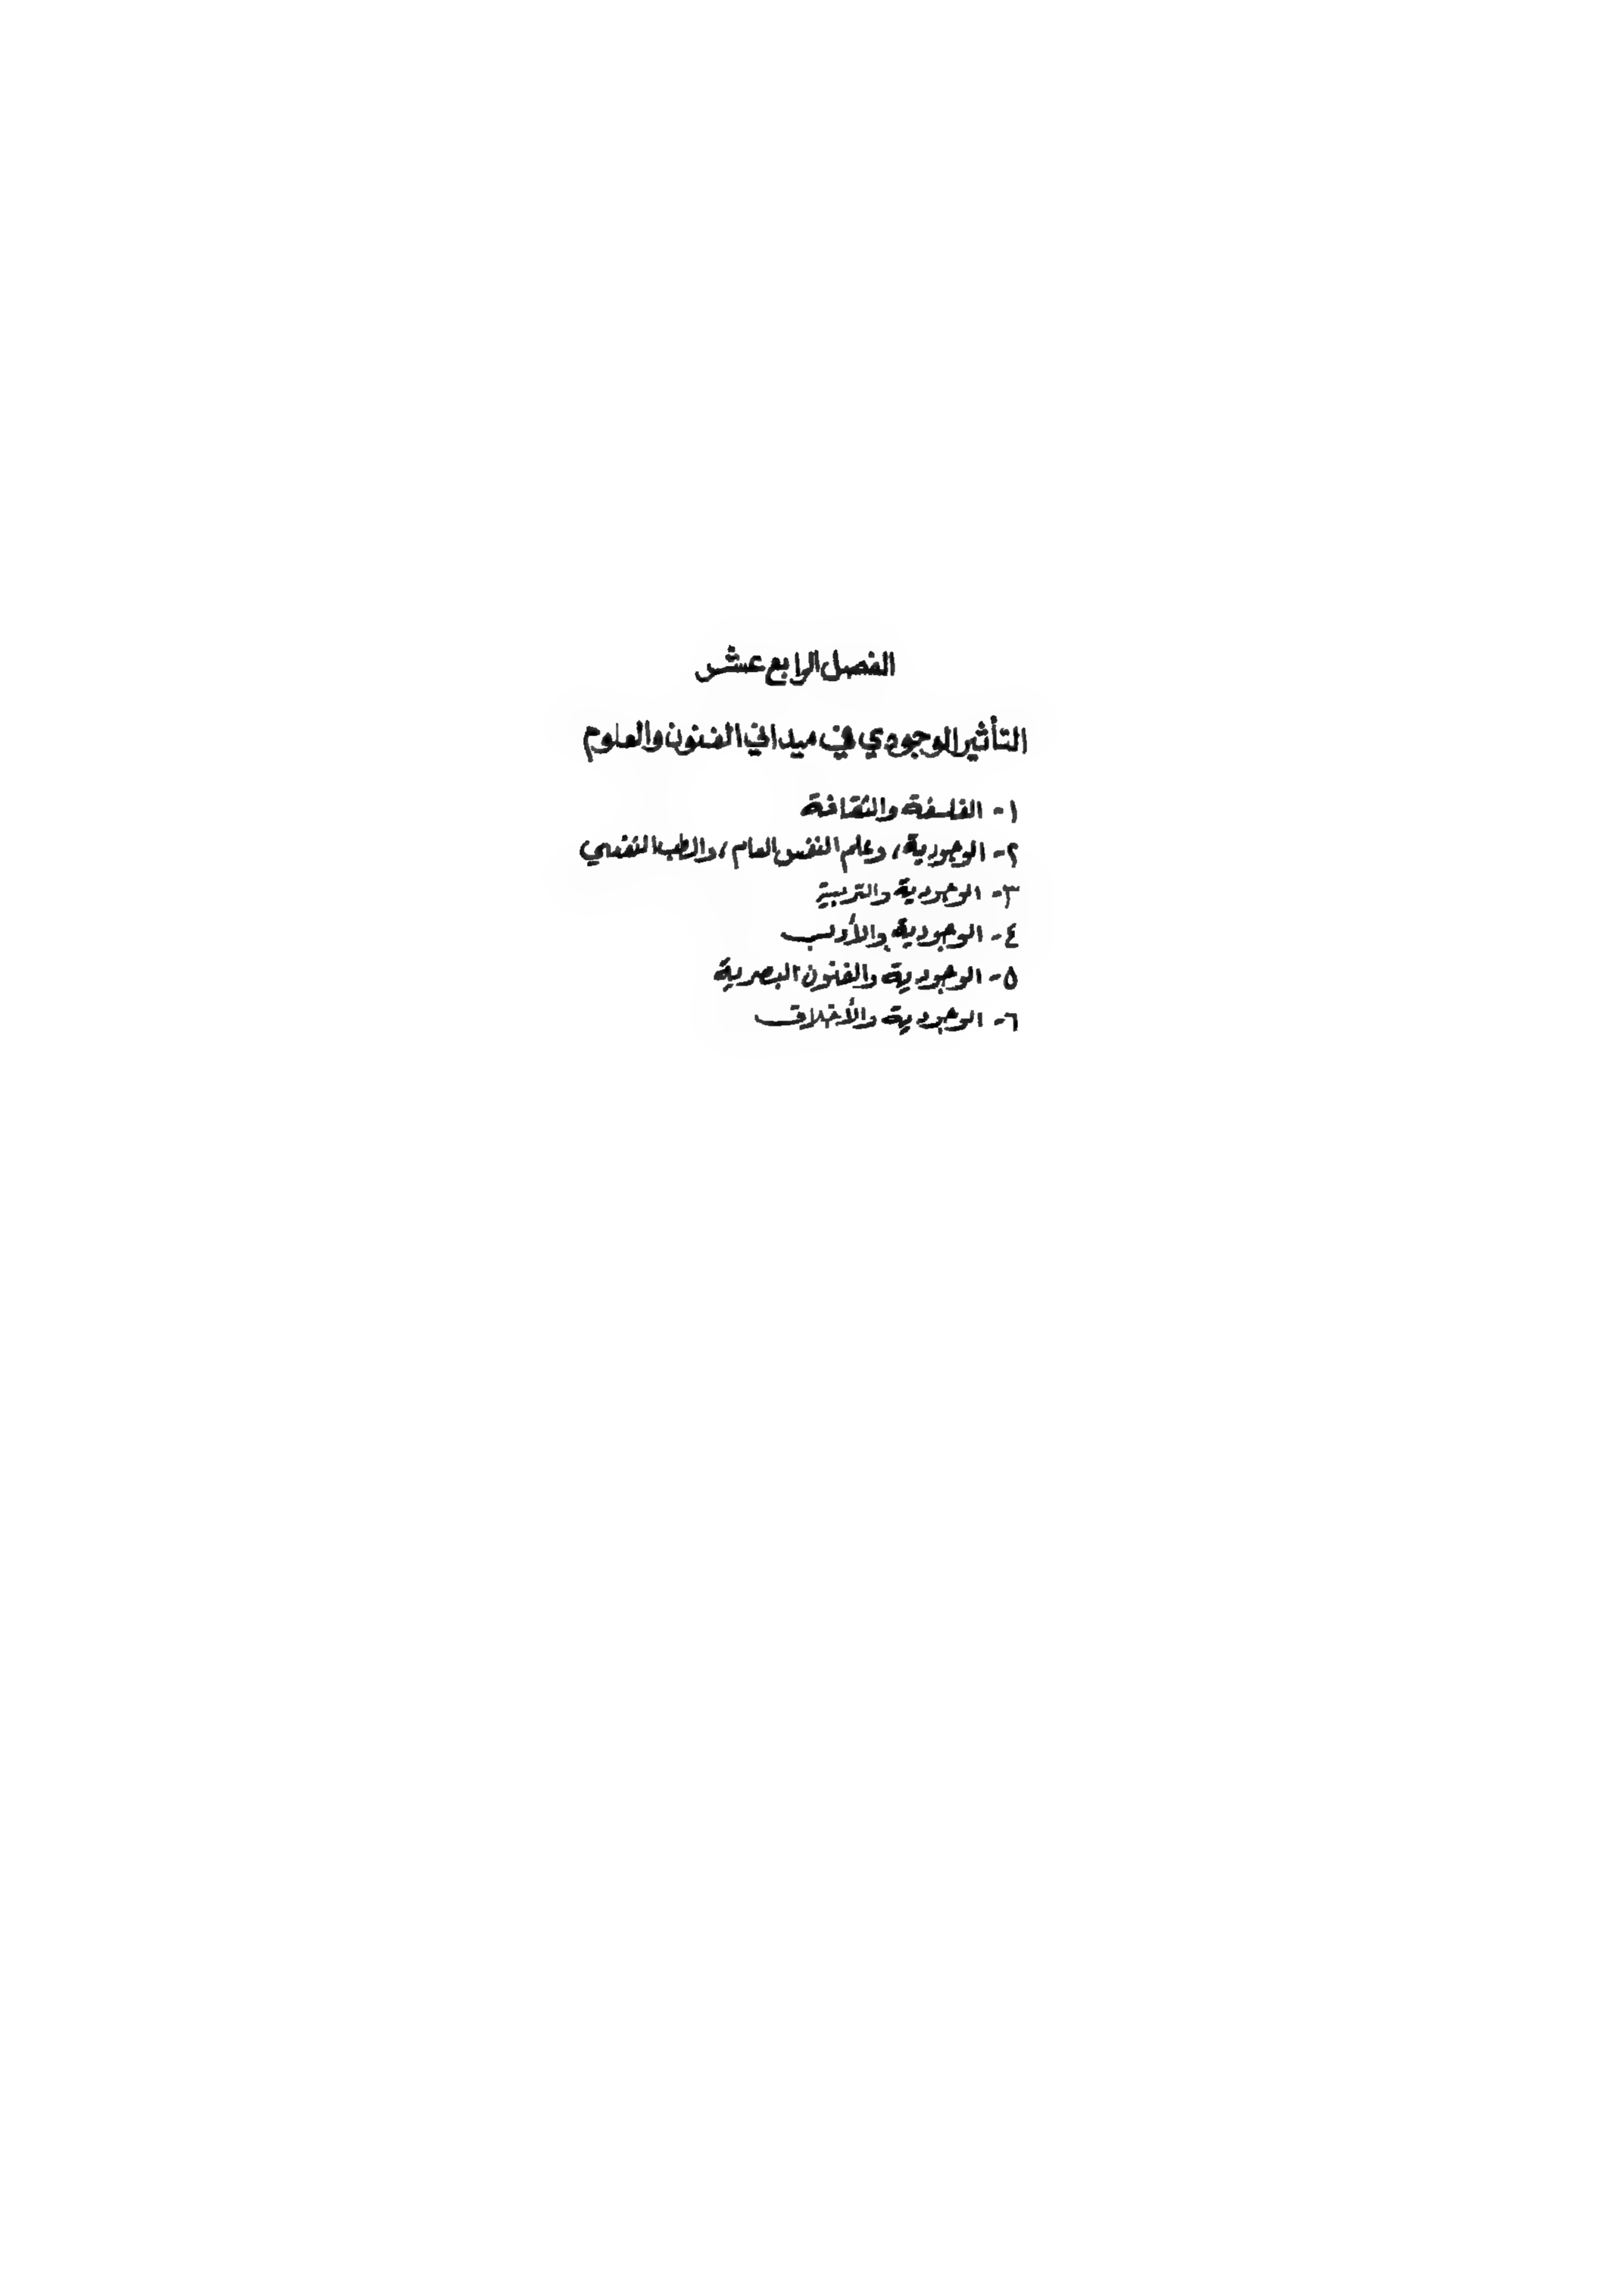 الفصل الرابع عشر
التأثير الوجودي في ميداني الفنون والعلوم
١- الفلسفة والثقافة
٢- الوجودية، وعلم النفس العام، والطب النفسي
٣- الوجودية والتربية
٤- الوجودية والأدب
٥- الوجودية والفنون البصرية
٦- الوجودية والأخلاق